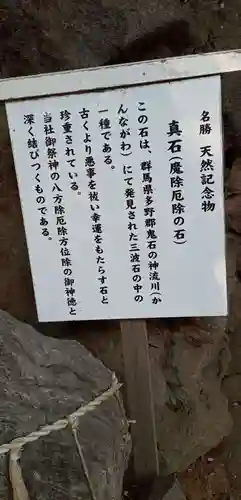 名勝 天然記念物
真石(魔除厄除の石)
この石は、群馬県多野郡鬼石の神流川(か
んながわ)にて発見された三波石の中の
一種である。
古くより悪事を祓い幸運をもたらす石と
珍重されている。
当社御祭神の八方除厄除方位除の御神徳と
深く結びつくものである。